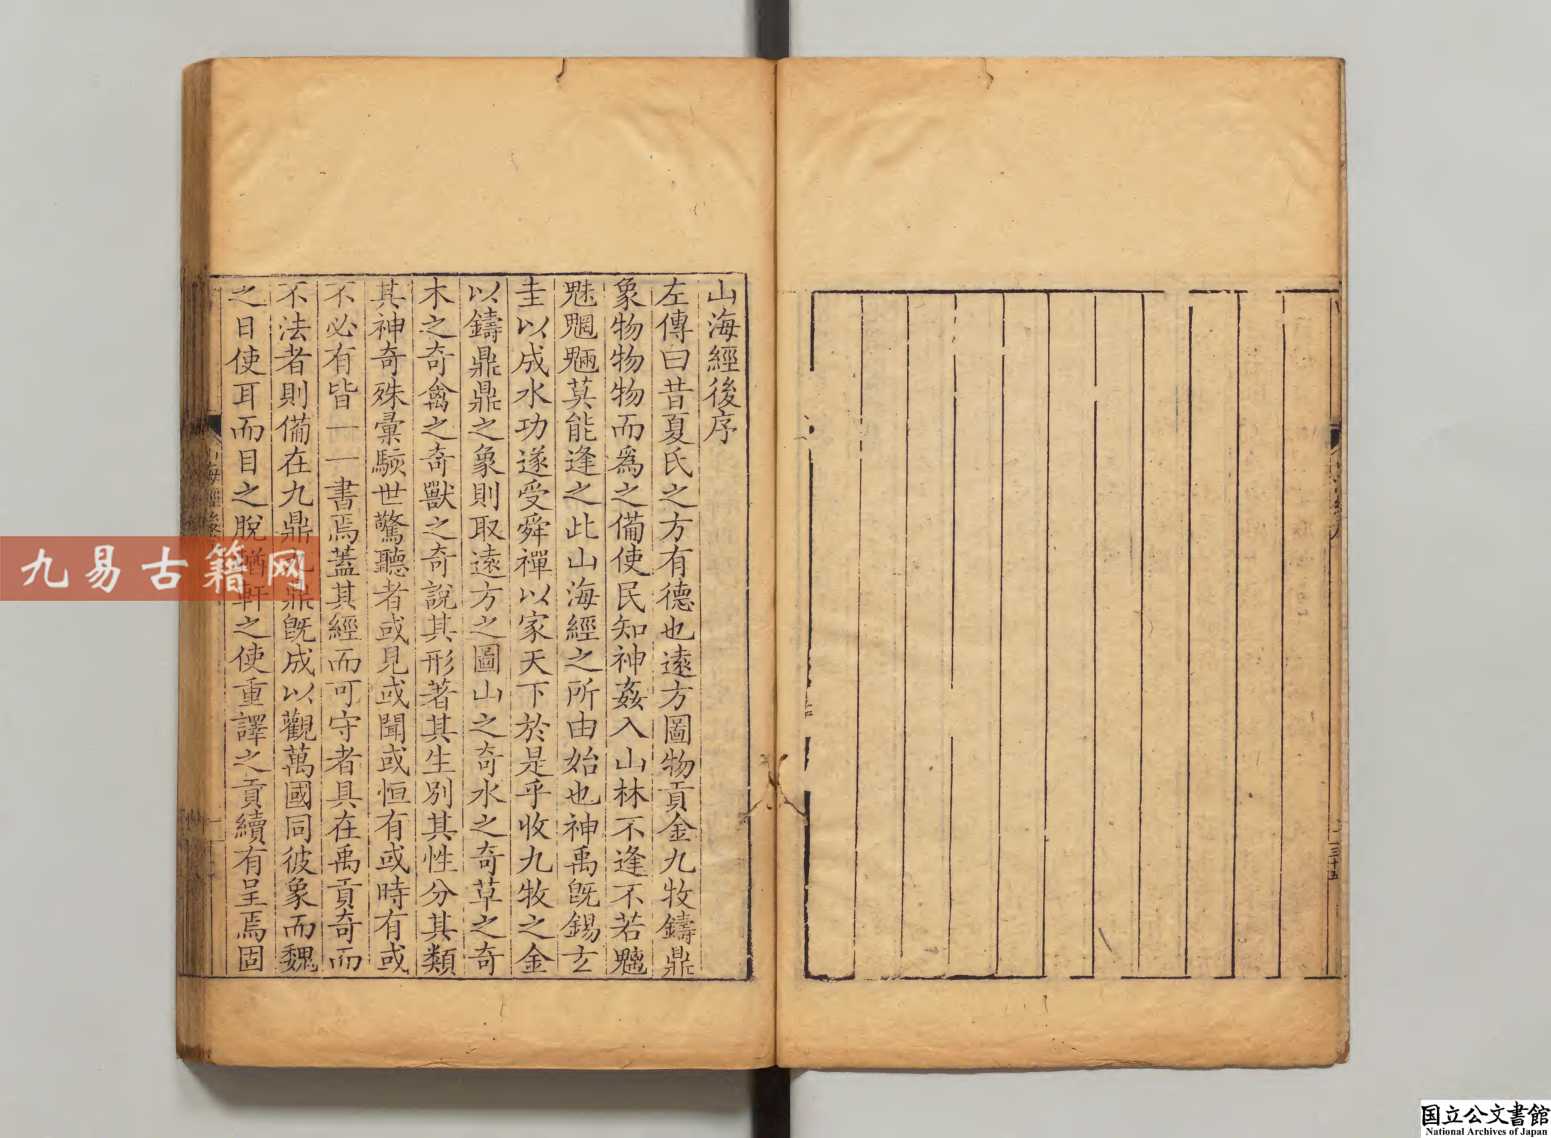 山海經後序
左傳曰昔夏氏之方有德也遠方圖物貢金九牧鑄鼎
象物物物而爲之備使民知神姦入山林不逢不若魑
魅魍魎莫能逢之此山海經之所由始也神禹旣錫玄
圭以成水功遂受舜禪以家天下於是乎收九牧之金
以鑄鼎鼎之象則取遠方之圖山之奇水之奇草之奇
木之奇禽之奇獸之奇說其形著其生別其性分其類
其神奇殊彙駭世驚聽者或見或聞或恒有或時有或
不必有皆一一書焉蓋其經而可守者具在禹貢奇而
不法者則備在九鼎九鼎旣成以觀萬國同彼象而魏
之日使耳而目之脫輶軒之使重譯之貢續有呈焉固
三十五
九易古籍网
国立公文書館
National Archives of Japan